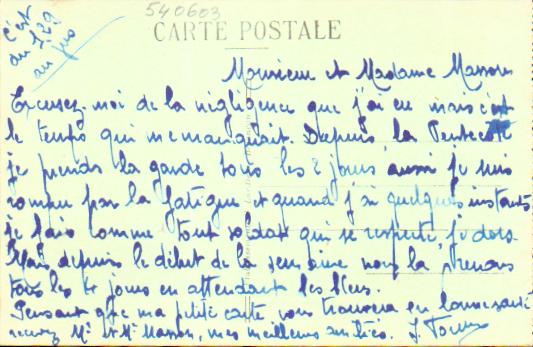 540603
c'est
du 129
au jus
CARTE POSTALE
Monsieur et Madame Masson
Excusez-moi de la négligence que j'ai eu mais c'est
le temps qui me manquait. Depuis la Pentecôte
je prends la garde tous les 2 jours aussi je suis
rompu par la fatigue et quand j'ai quelques instants
je fais comme tout soldat qui se respecte, je dors.
Mais depuis le début de la semaine nous la prenons
tous les 4 jours en attendant les bleus.
Pensant que ma petite carte vous trouvera en bonne santé
recevez Mr et Me Masson, mes meilleures amitiés. J.